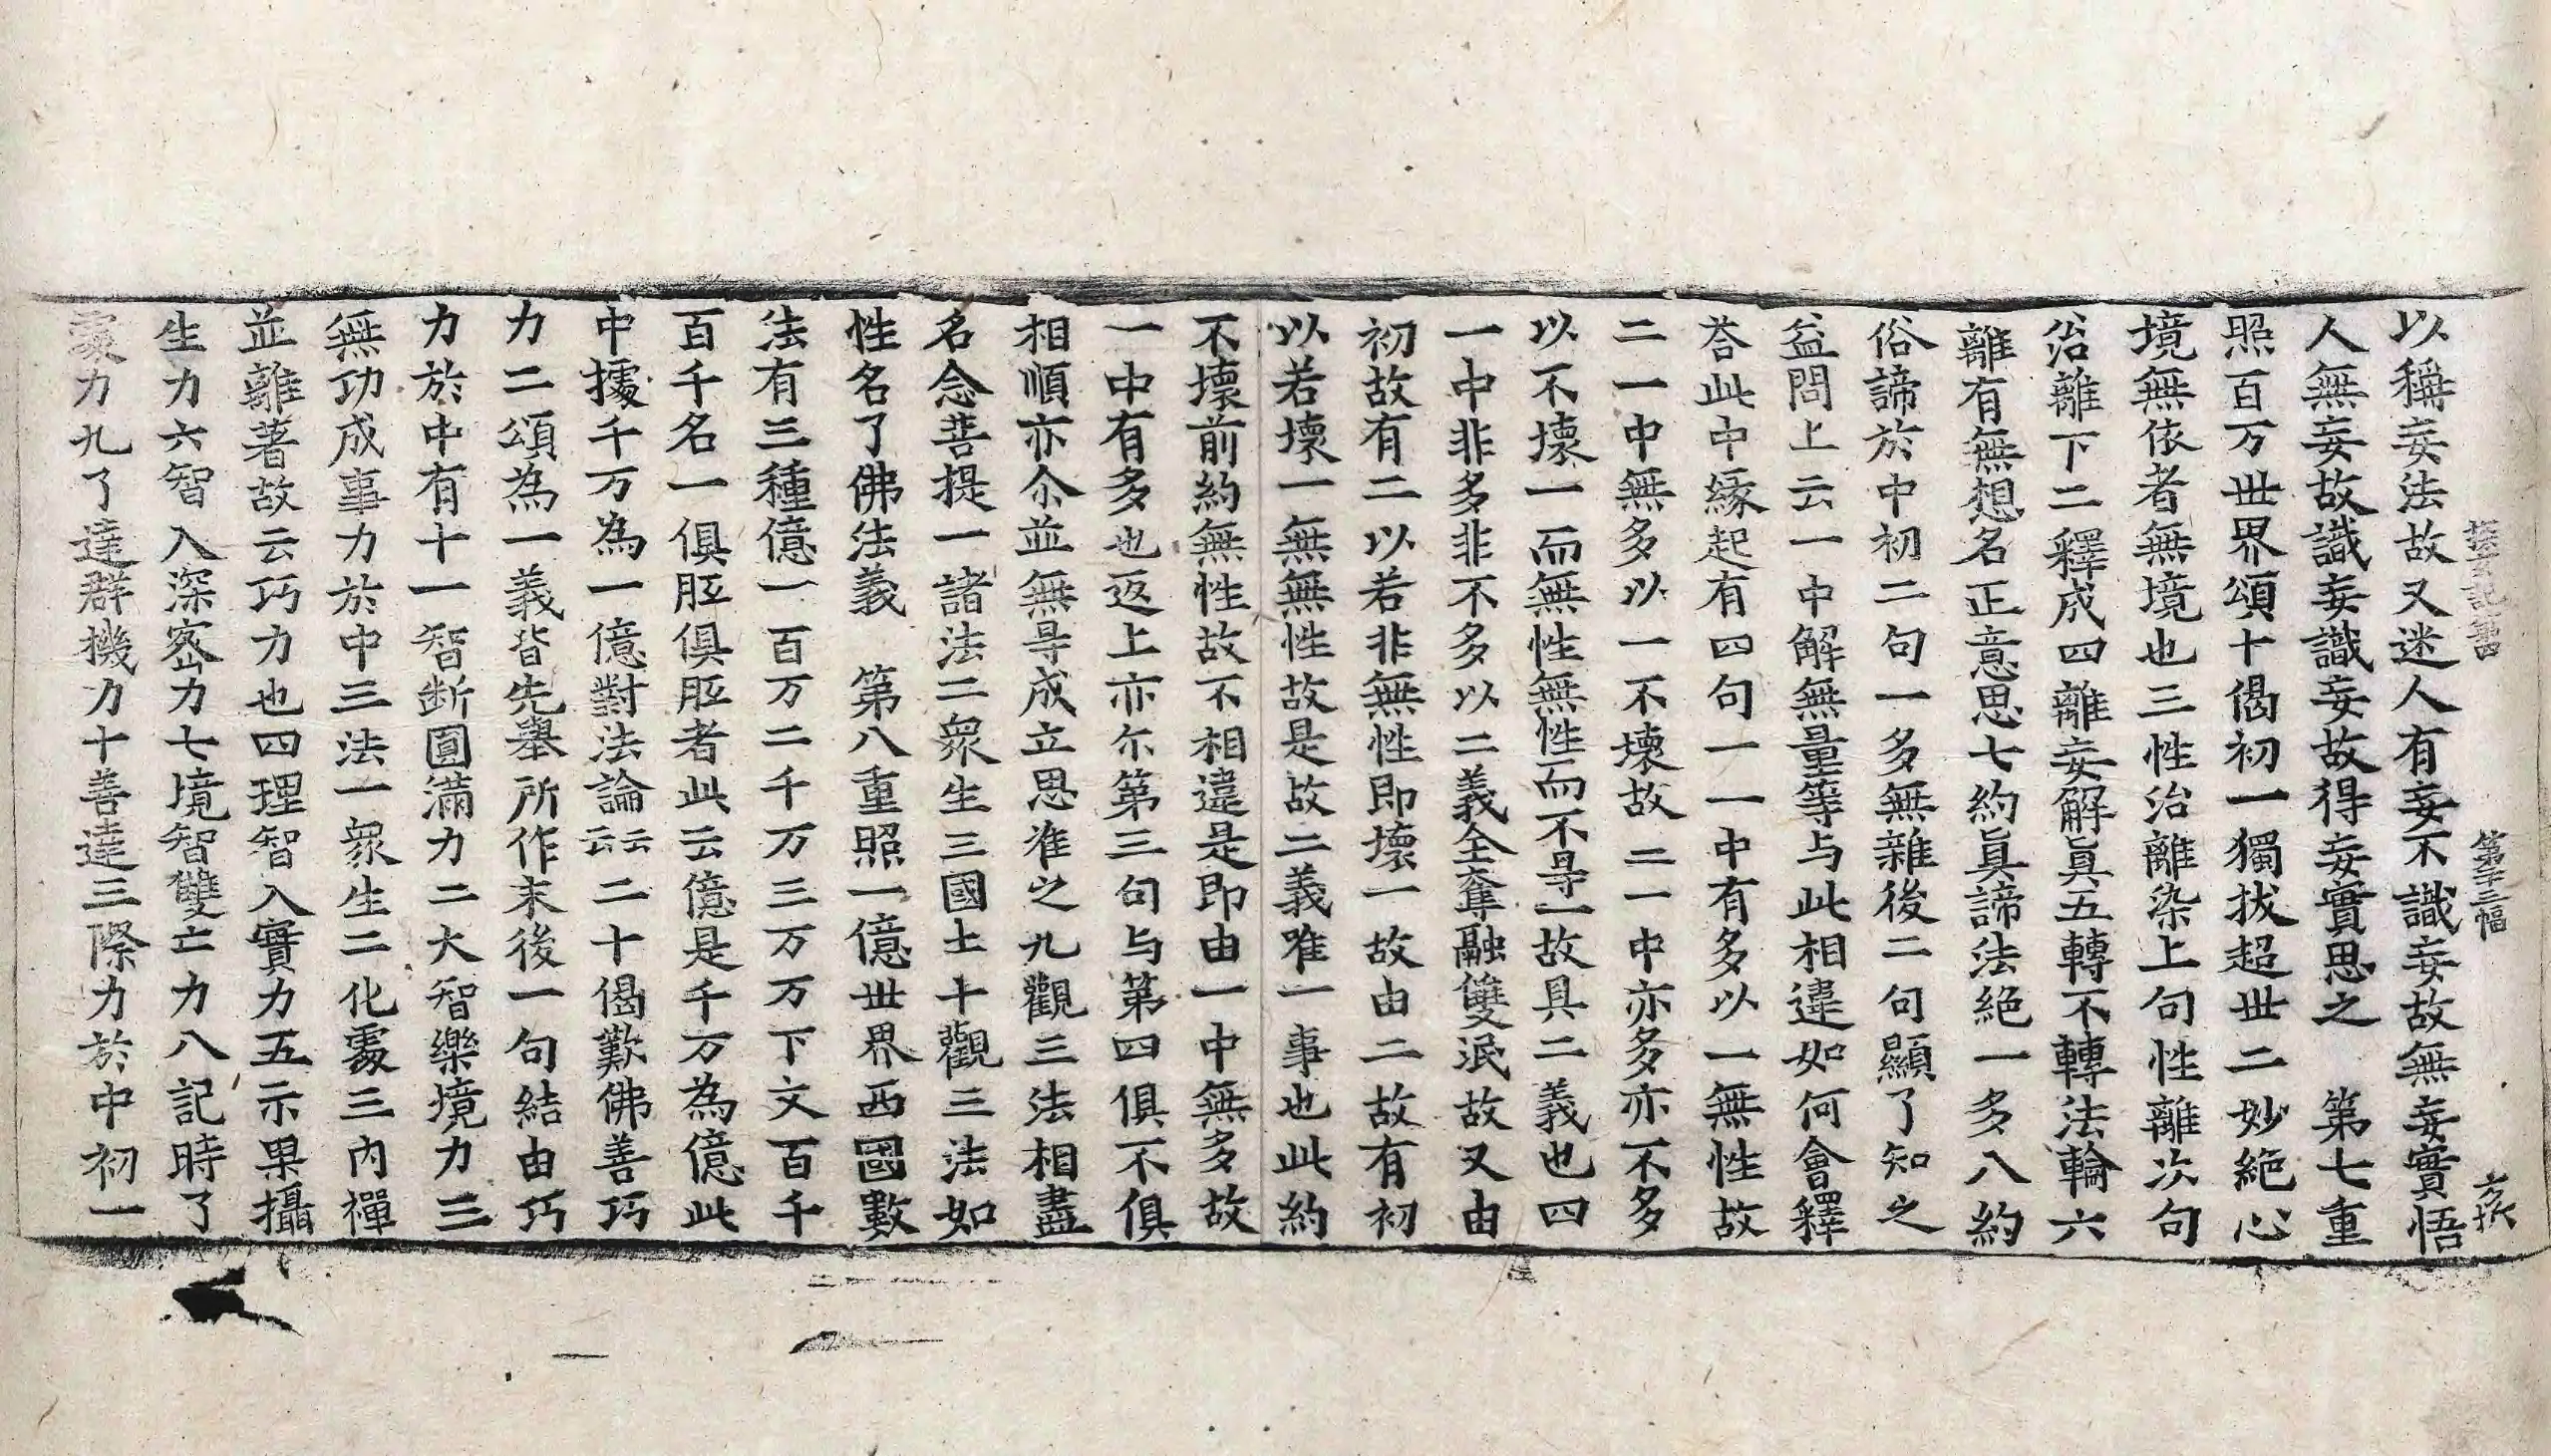 探玄記第四 第十三幅 亥張
以稱妄法故又迷人有妄不識妄故無妄實悟
人無妄故識妄識妄故得妄實思之 第七重
照百万世界頌十偈初一獨拔超世二妙絶心
境無依者無境也三性治離染上句性離次句
治離下二釋成四離妄解真五轉不轉法輪六
離有無想名正意思七約真諦法絶一多八約
俗諦於中初二句一多無雜後二句顯了知之
益問上云一中解無量等与此相違如何會釋
荅此中緣起有四句一一中有多以一無性故
二一中無多以一不壞故二一中亦多亦不多
以不壞一而無性無性而不㝵一故具二義也四
一中非多非不多以二義全奪融雙泯故又由
初故有二以若非無性即壞一故由二故有初
以若壞一無無性故是故二義唯一事也此約
不壞前約無性故不相違是即由一中無多故
一中有多也返上亦尓第三句与第四俱不俱
相順亦尒並無㝵成立思准之九觀三法相盡
名念菩提一諸法二衆生三國土十觀三法如
性名了佛法義 第八重照一億世界西國數
法有三種億一百万二千万三万万下文百千
百千名一俱胝俱胝者此云億是千万為億此
中據千万為一億對法論云云二十偈歎佛善巧
力二頌為一義皆先舉所作末後一句結由巧
力於中有十一智断圓滿力二大智樂境力三
無功成事力於中三法一衆生二化䖏三内禪
並離著故云巧力也四理智入實力五示果攝
生力六智入深宻力七境智雙亡力八記時了
䖏力九了達群機力十善達三際力於中初一